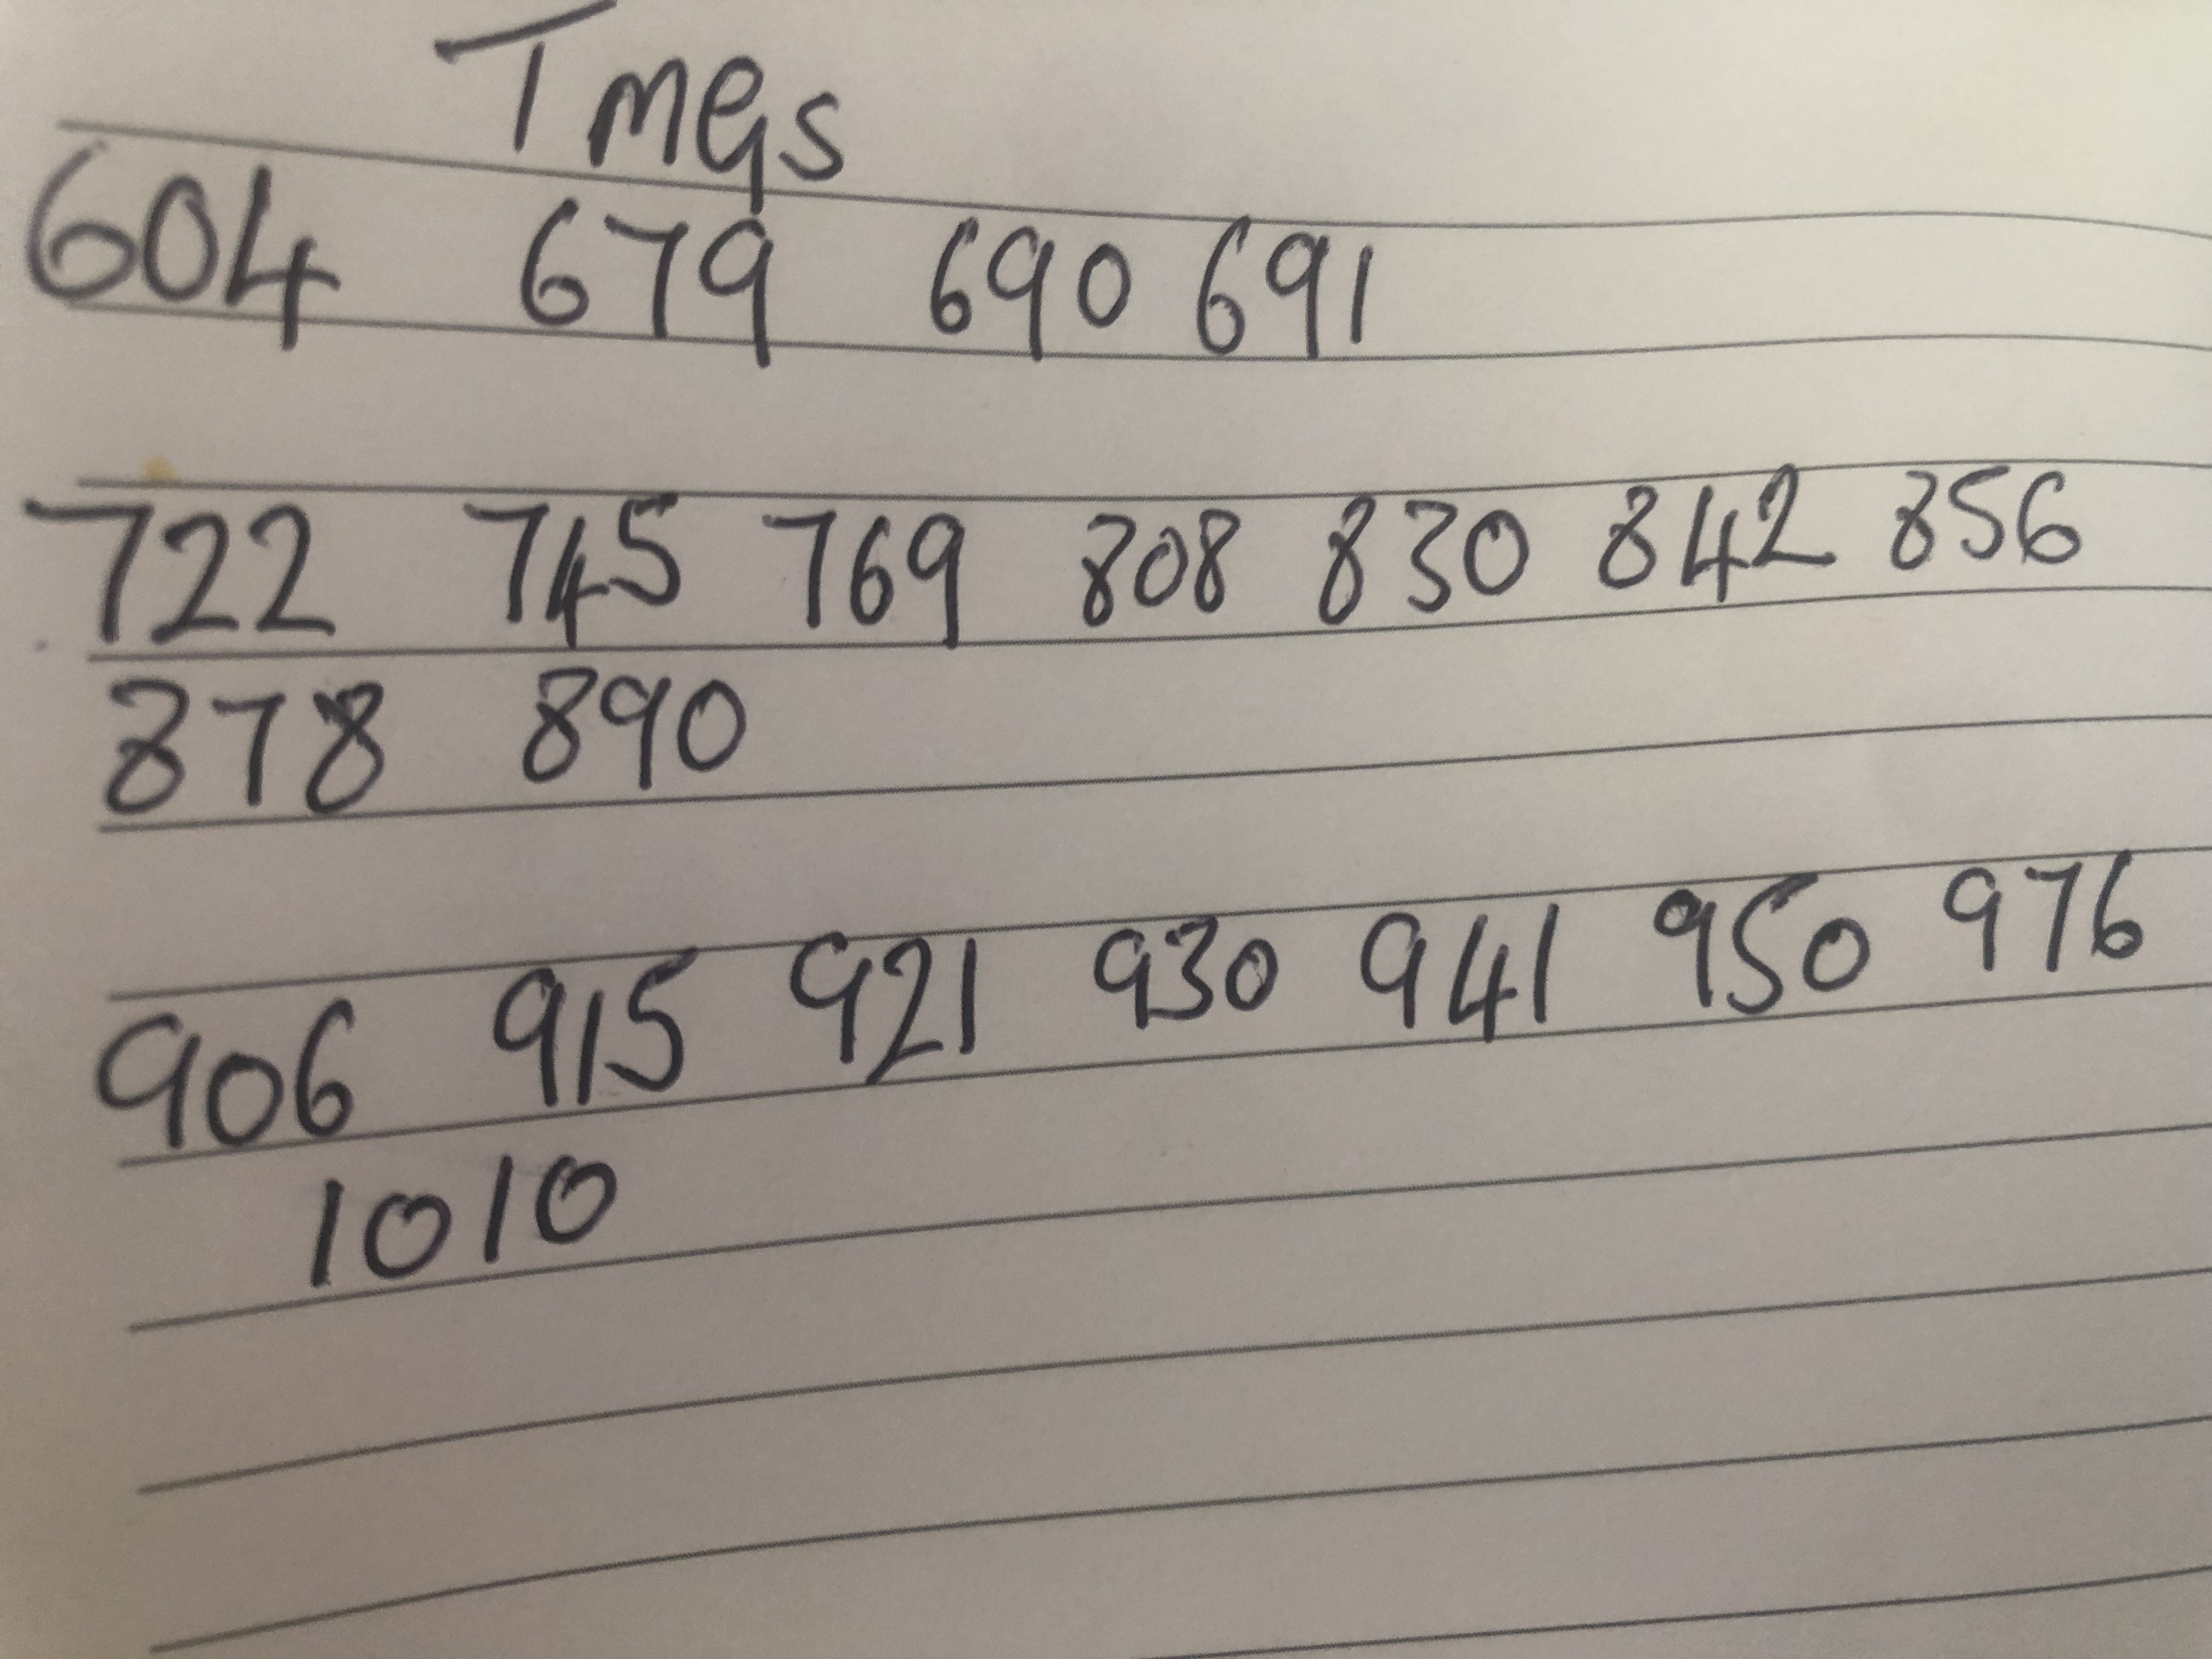 Tmgs
604 679 690 691
722 745 769 808 830 842 856
878 890
906 915 921 930 941 950 976
1010